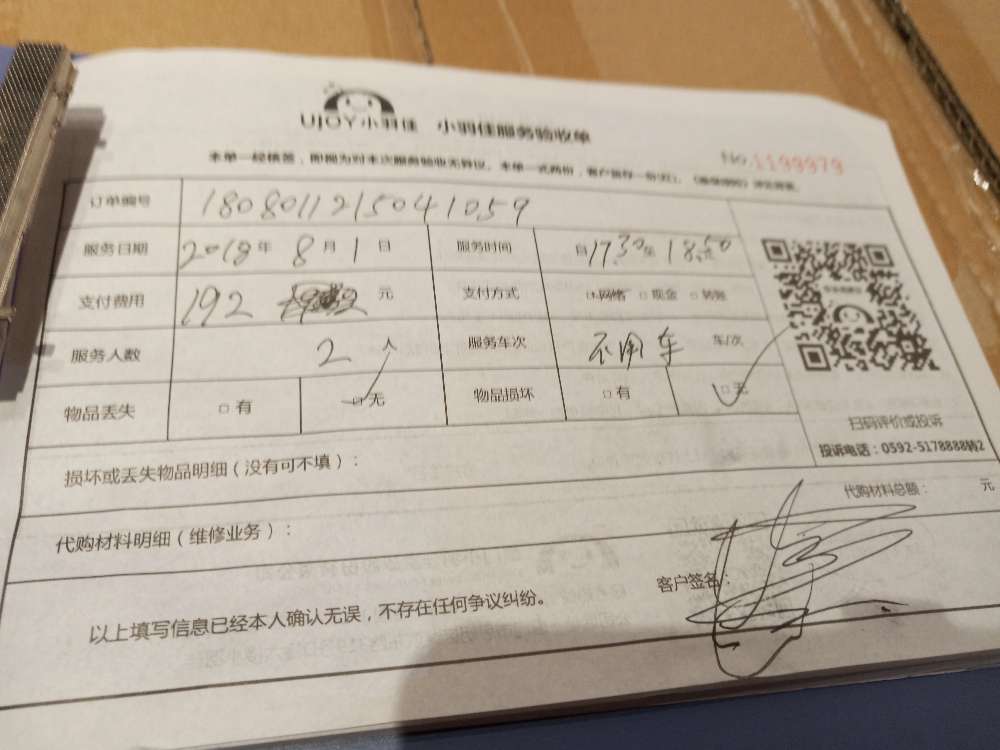 UJOY小羽佳 小羽佳服务验收单
No.1199979
本单一经核签，即视为对本次服务验收无异议。本单一式两份，客户留存一份
订单编号 180801121504 1059
服务日期 2018年 8月 1日 服务时间 自17.30至18.50
支付费用 192 元 支付方式 □网络 □现金 □转账
服务人数 2人 服务车次 不用车 车/次
物品丢失 □有 □无 物品损坏 □有 □无
扫码评价或投诉
投诉电话：0592-5178888转2
损坏或丢失物品明细（没有可不填）：
代购材料明细（维修业务）： 代购材料总额： 元
客户签名：
以上填写信息已经本人确认无误，不存在任何争议纠纷。